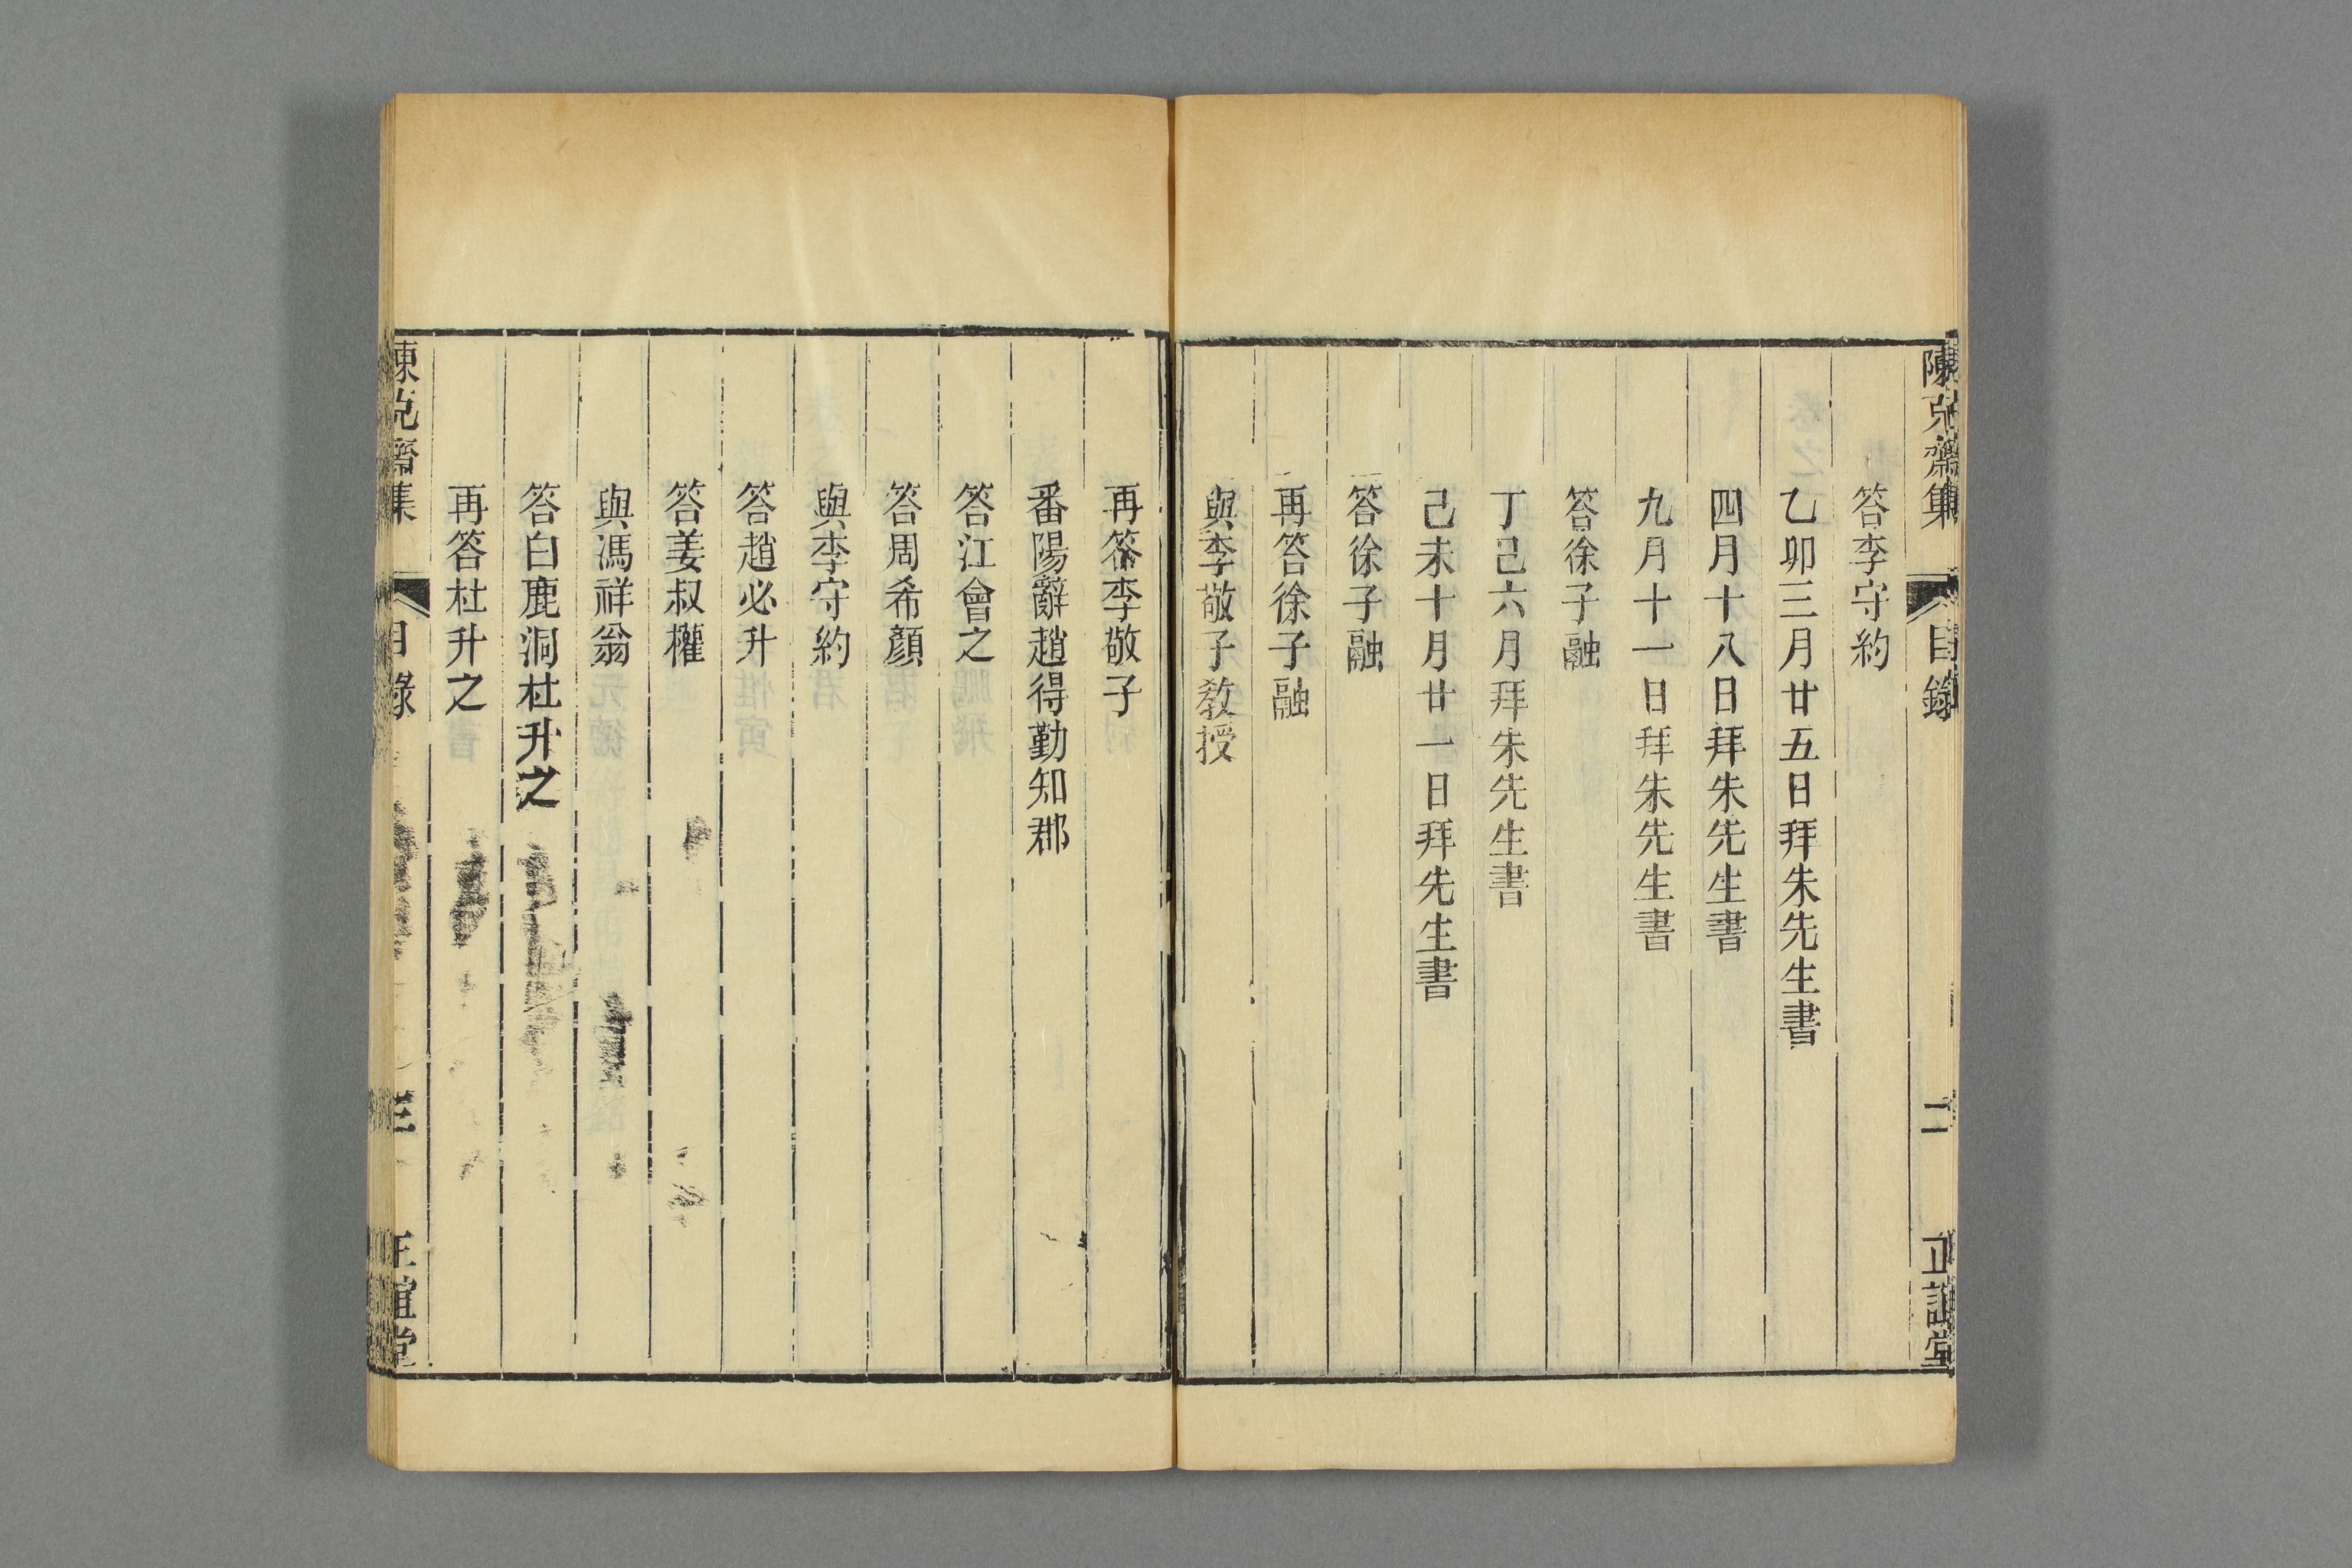 陳克齋集 目錄 二 正誼堂
答李守約
乙卯三月廿五日拜朱先生書
四月十八日拜朱先生書
九月十一日拜朱先生書
答徐子融
丁巳六月拜朱先生書
己未十月廿一日拜先生書
答徐子融
再答徐子融
與李敬子敎授
再答李敬子
番陽辭趙得勤知郡
答江會之
答周希顏
與李守約
答趙必升
答姜叔權
與馮祥翁
答白鹿洞杜升之
再答杜升之
陳克齋集 目錄 三 正誼堂